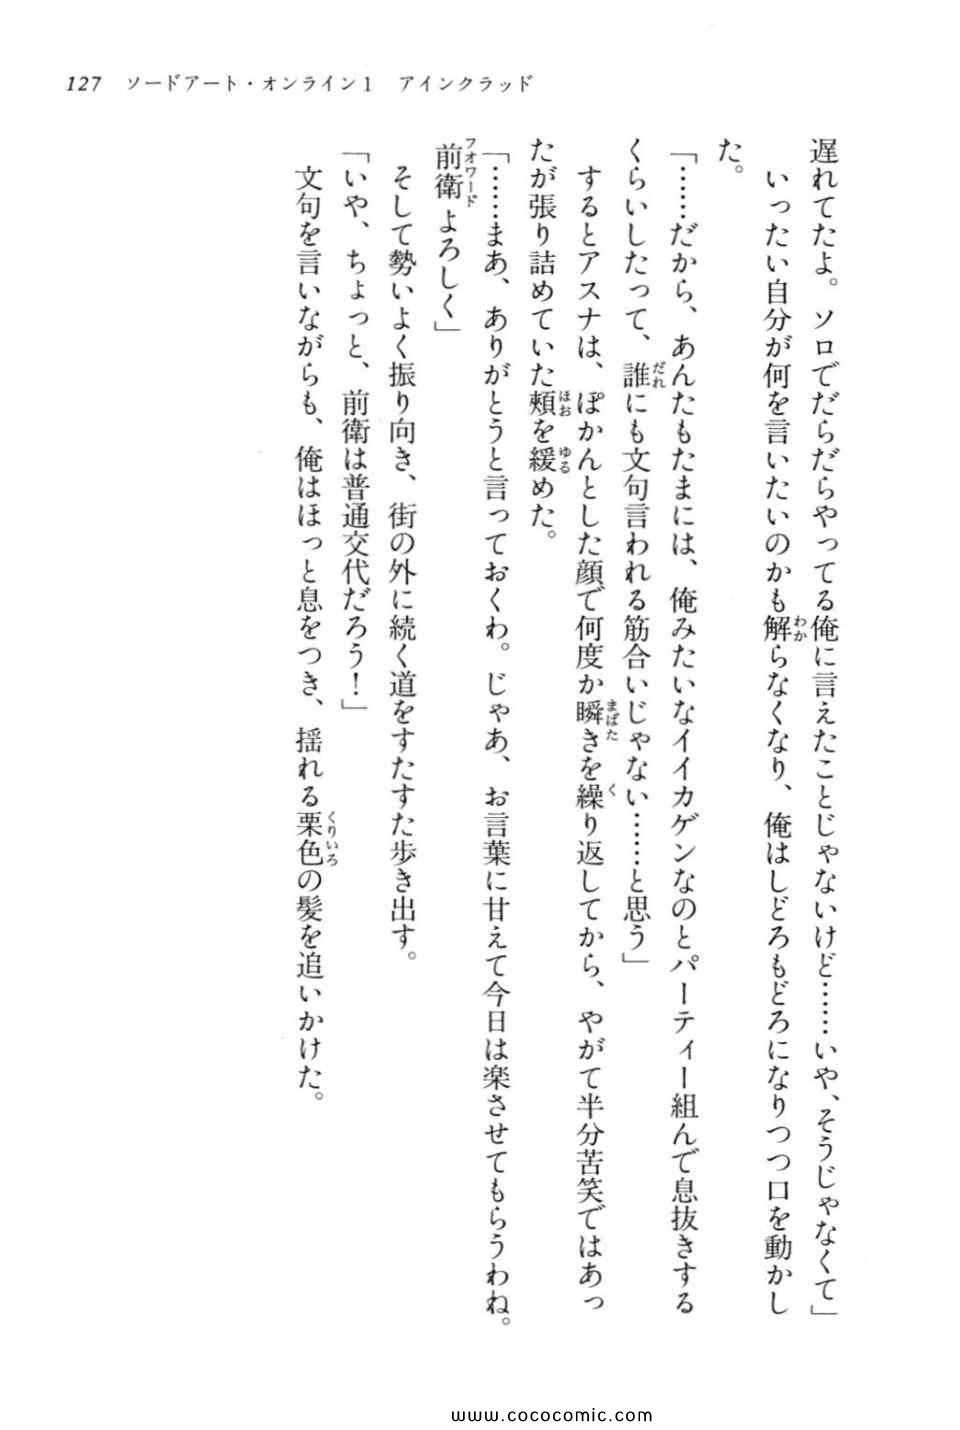 127 ソードアート・オンライン1 アインクラッド
遅れてたよ。ソロでだらだらやってる俺に言えたことじゃないけど……いや、そうじゃなくて」
いったい自分が何を言いたいのかも解らなくなり、俺はしどろもどろになりつつ口を動かし
た。
「……だから、あんたもたまには、俺みたいなイイカゲンなのとパーティー組んで息抜きする
くらいしたって、誰にも文句言われる筋合いじゃない……と思う」
するとアスナは、ぽかんとした顔で何度か瞬きを繰り返してから、やがて半分苦笑ではあっ
たが張り詰めていた頬を緩めた。
「……まあ、ありがとうと言っておくわ。じゃあ、お言葉に甘えて今日は楽させてもらうわね。
前衛よろしく」
そして勢いよく振り向き、街の外に続く道をすたすた歩き出す。
「いや、ちょっと、前衛は普通交代だろう！」
文句を言いながらも、俺はほっと息をつき、揺れる栗色の髪を追いかけた。
www.cococomic.com